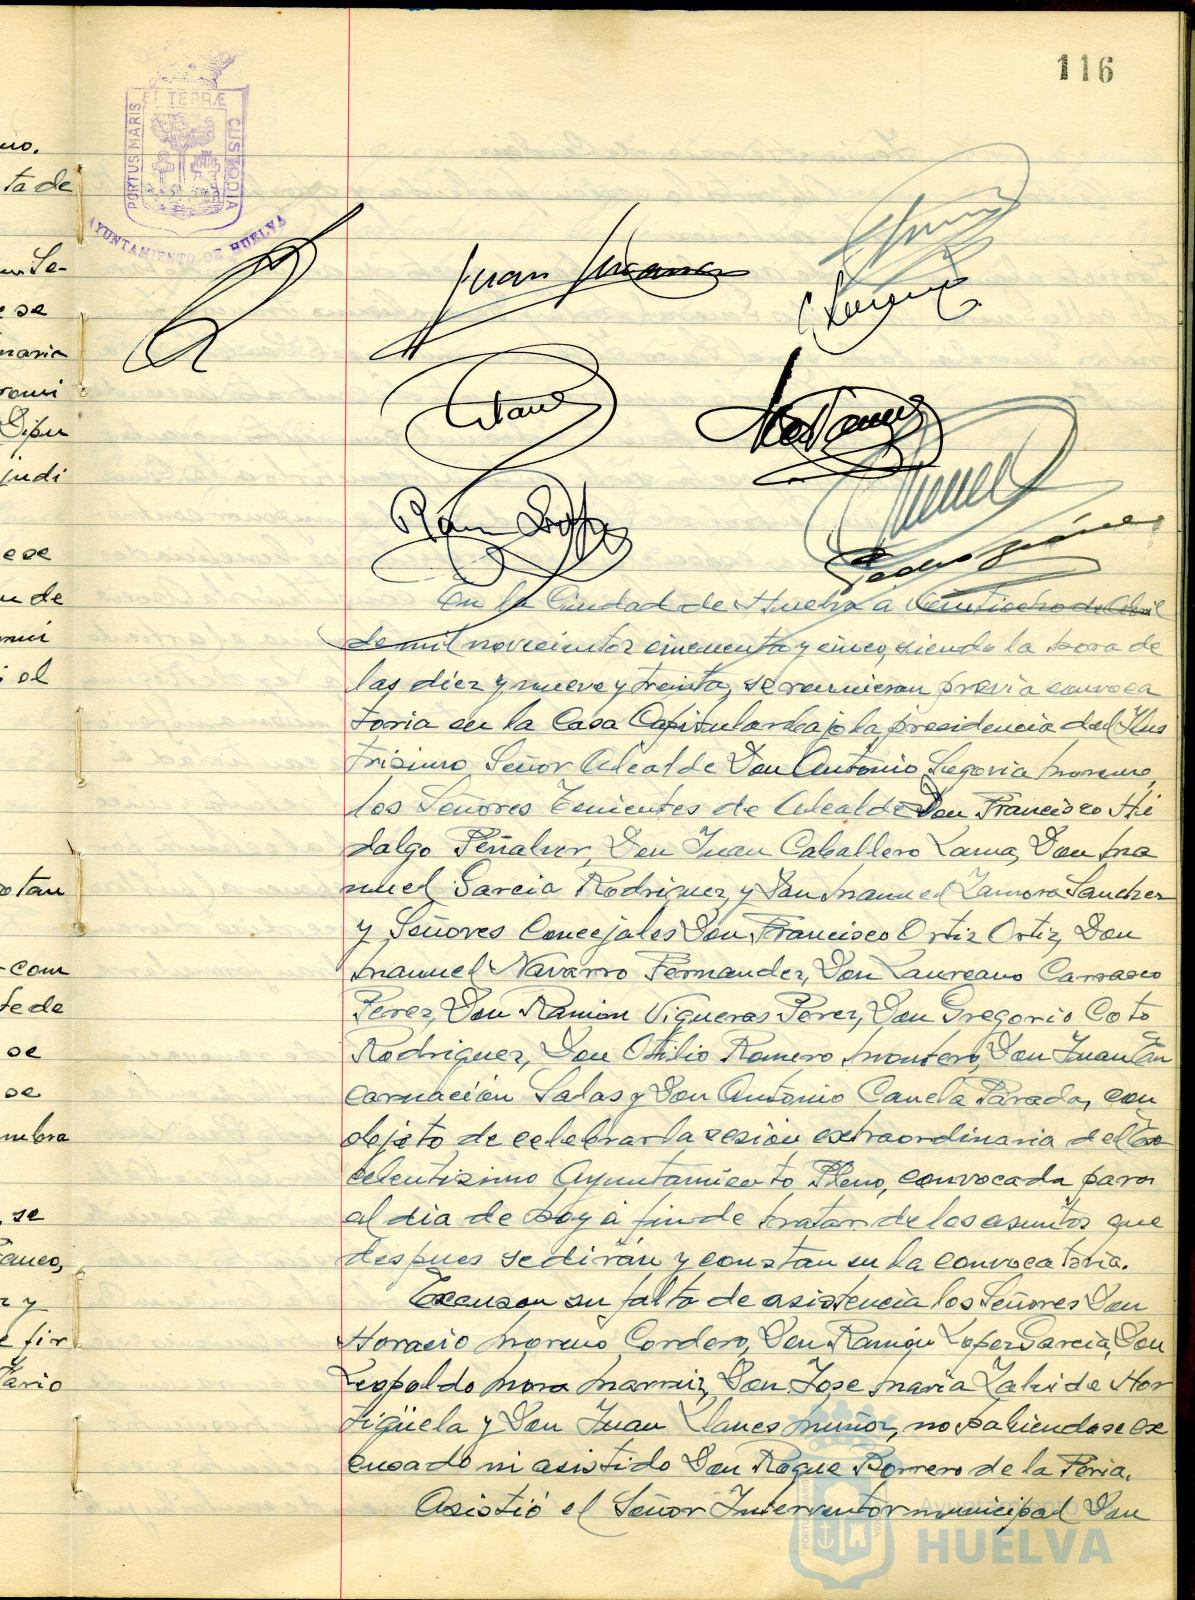 116
PORTUS MARIS
ET TERRÆ
CUSTODIA
AYUNTAMIENTO DE HUELVA
uo.
ta de
Se-
se
maria
romi
Dipu
judi
ese
u de
ol
tan
com
fe de
se
se
mbra
, se
anco,
z y
e fir
tario
Juan
Ramon Lopez
Pedro
En la Ciudad de Huelva a veintiocho de Abril
de mil novecientos cincuenta y cinco, siendo la hora de
las diez y nueve y treinta, se reunieron previa convoca
toria en la Casa Capitular bajo la presidencia del Ilus
trisimo Señor Alcalde Don Antonio Segovia Moreno,
los Señores Tenientes de Alcalde Don Francisco Hi
dalgo Peñalver, Don Juan Caballero Lama, Don Ma
nuel Garcia Rodriguez, y Don Manuel Zamora Sanchez
y Señores Concejales Don Francisco Ortiz Ortiz, Don
Manuel Navarro Fernandez, Don Laureano Carrasco
Perez, Don Ramon Vigueras Perez, Don Gregorio Coto
Rodriguez, Don Otilio Romero Montero, Don Juan En
carnación Salas y Don Antonio Canela Parada, con
objeto de celebrar la sesión extraordinaria del Ex
celentisimo Ayuntamiento Pleno, convocada para
al dia de hoy a fin de tratar de los asuntos que
despues se dirán y constan en la convocatoria.
Excusan su falta de asistencia los Señores Don
Horacio Moreno Cordero, Don Ramón Lopez Garcia, Don
Leopoldo Mora Don Jose Maria Zalvide Hor
tigüela y Don Juan Llanes Muñoz, no habiendose ex
cusado ni asistido Don Roque Borrero de la Feria.
Asistió el Señor Interventor municipal Don
Ayuntamiento
HUELVA